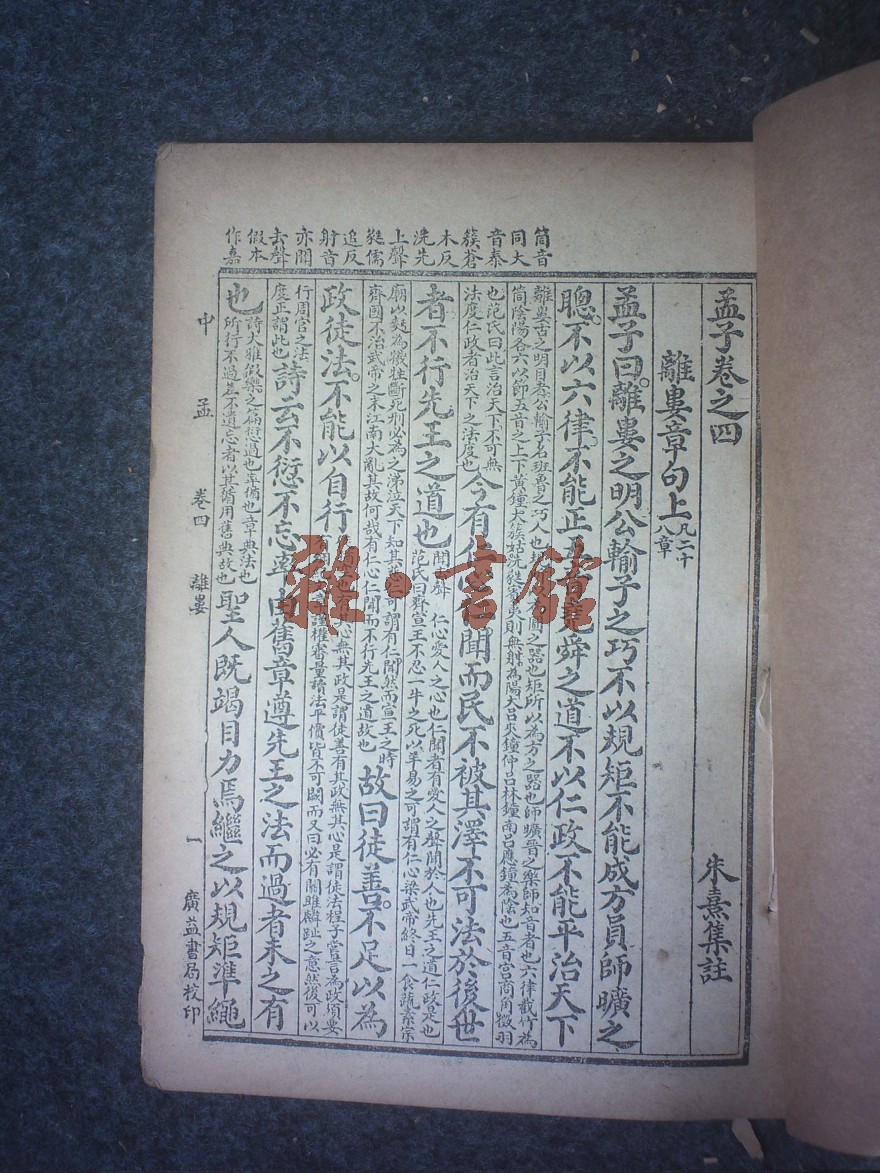 筒音
同大
音泰
簇蒼
木反
洗先
上聲
蕤儒
追反
射音
亦聞
去聲
假本
作嘉
孟子卷之四
朱熹集註
離婁章句上
凡二十
八章
孟子曰離婁之明公輸子之巧不以規矩不能成方員師曠之
聰不以六律不能正五堯舜之道不以仁政不能平治天下
離婁古之明目者公輸子名班魯之巧人也圓之器也矩所以為方之器也師曠晉之樂師知音者也六律截竹為
筒陰陽各六以節五音之上下黃鐘大簇姑洗蕤賓夷則無射為陽大呂夾鐘仲呂林鐘南呂應鐘為陰也五音宮商角徵羽
也范氏曰此言治天下不可無
法度仁政者治天下之法度也
今有仁聞而民不被其澤不可法於後世
者不行先王之道也
聞去聲 仁心愛人之心也仁聞者有愛人之聲聞於人也先王之道仁政是也
范氏曰齊宣王不忍一牛之死以羊易之可謂有仁心梁武帝終日一食蔬素宗
廟以麪為犧牲斷死刑必為之涕泣天下知其慈仁可謂有仁聞然而宣王之時
齊國不治武帝之末江南大亂其故何哉有仁心仁聞而不行先王之道故也
故曰徒善不足以為
政徒法不能以自行
有其心無其政是謂徒善有其政無其心是謂徒法程子嘗言為政須要
謹權審量讀法平價皆不可闕而又曰必有關雎麟趾之意然後可以
行周官之法
度正謂此也
詩云不愆不忘率由舊章遵先王之法而過者未之有
也
詩大雅假樂之篇愆過也率循也章典法也
所行不過差不遺忘者以其循用舊典故也
聖人既竭目力焉繼之以規矩準繩
中孟
卷四
離婁
一
廣益書局校印
雜·書館